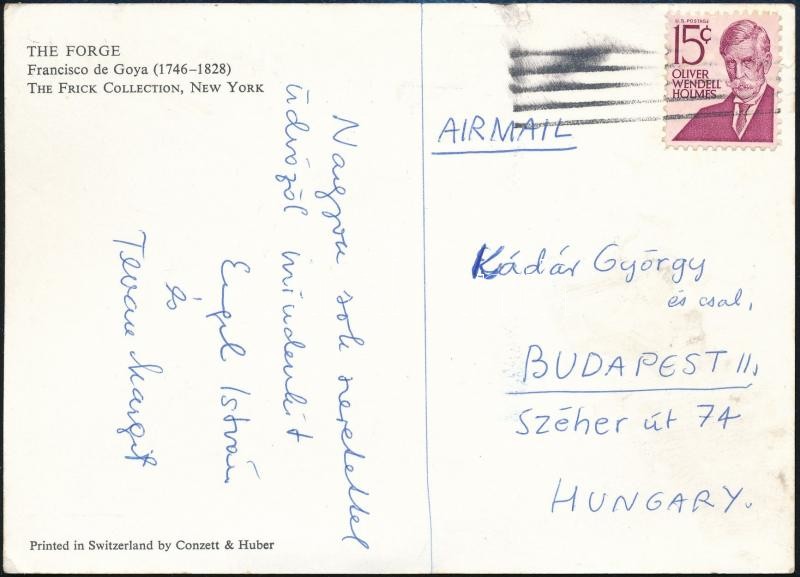 THE FORGE
Francisco de Goya (1746–1828)
THE FRICK COLLECTION, NEW YORK
Nagyon sok szeretettel
üdvözöl mindenkit
Engel István
és
Tevan Margit
Printed in Switzerland by Conzett & Huber
U.S. POSTAGE
15¢
OLIVER
WENDELL
HOLMES
AIRMAIL
Kádár György
és csal.
BUDAPEST II,
Széher út 74
HUNGARY.